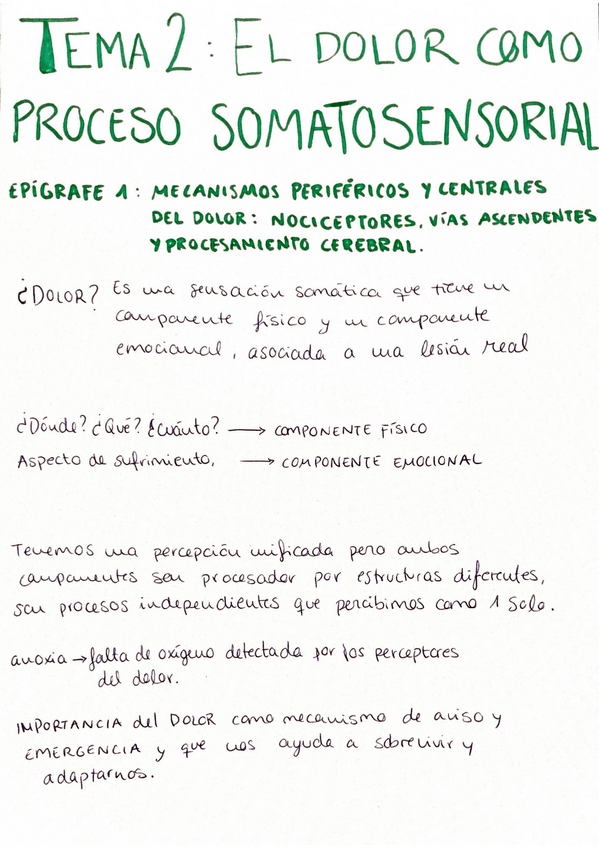 TEMA 2: EL DOLOR COMO
PROCESO SOMATOSENSORIAL
EPÍGRAFE 1: MECANISMOS PERIFÉRICOS Y CENTRALES
DEL DOLOR: NOCICEPTORES, VÍAS ASCENDENTES
Y PROCESAMIENTO CEREBRAL.
¿DOLOR? Es una sensación somática que tiene un
componente físico y un componente
emocional, asociada a una lesión real
¿Dónde? ¿Qué? ¿Cuánto? → COMPONENTE FÍSICO
Aspecto de sufrimiento, → COMPONENTE EMOCIONAL
Tenemos una percepción unificada pero ambos
componentes son procesador por estructuras diferentes,
son procesos independientes que percibimos como 1 solo.
anoxia → falta de oxígeno detectada por los perceptores
del dolor.
IMPORTANCIA del DOLOR como mecanismo de aviso y
EMERGENCIA y que nos ayuda a sobrevivir y
adaptarnos.